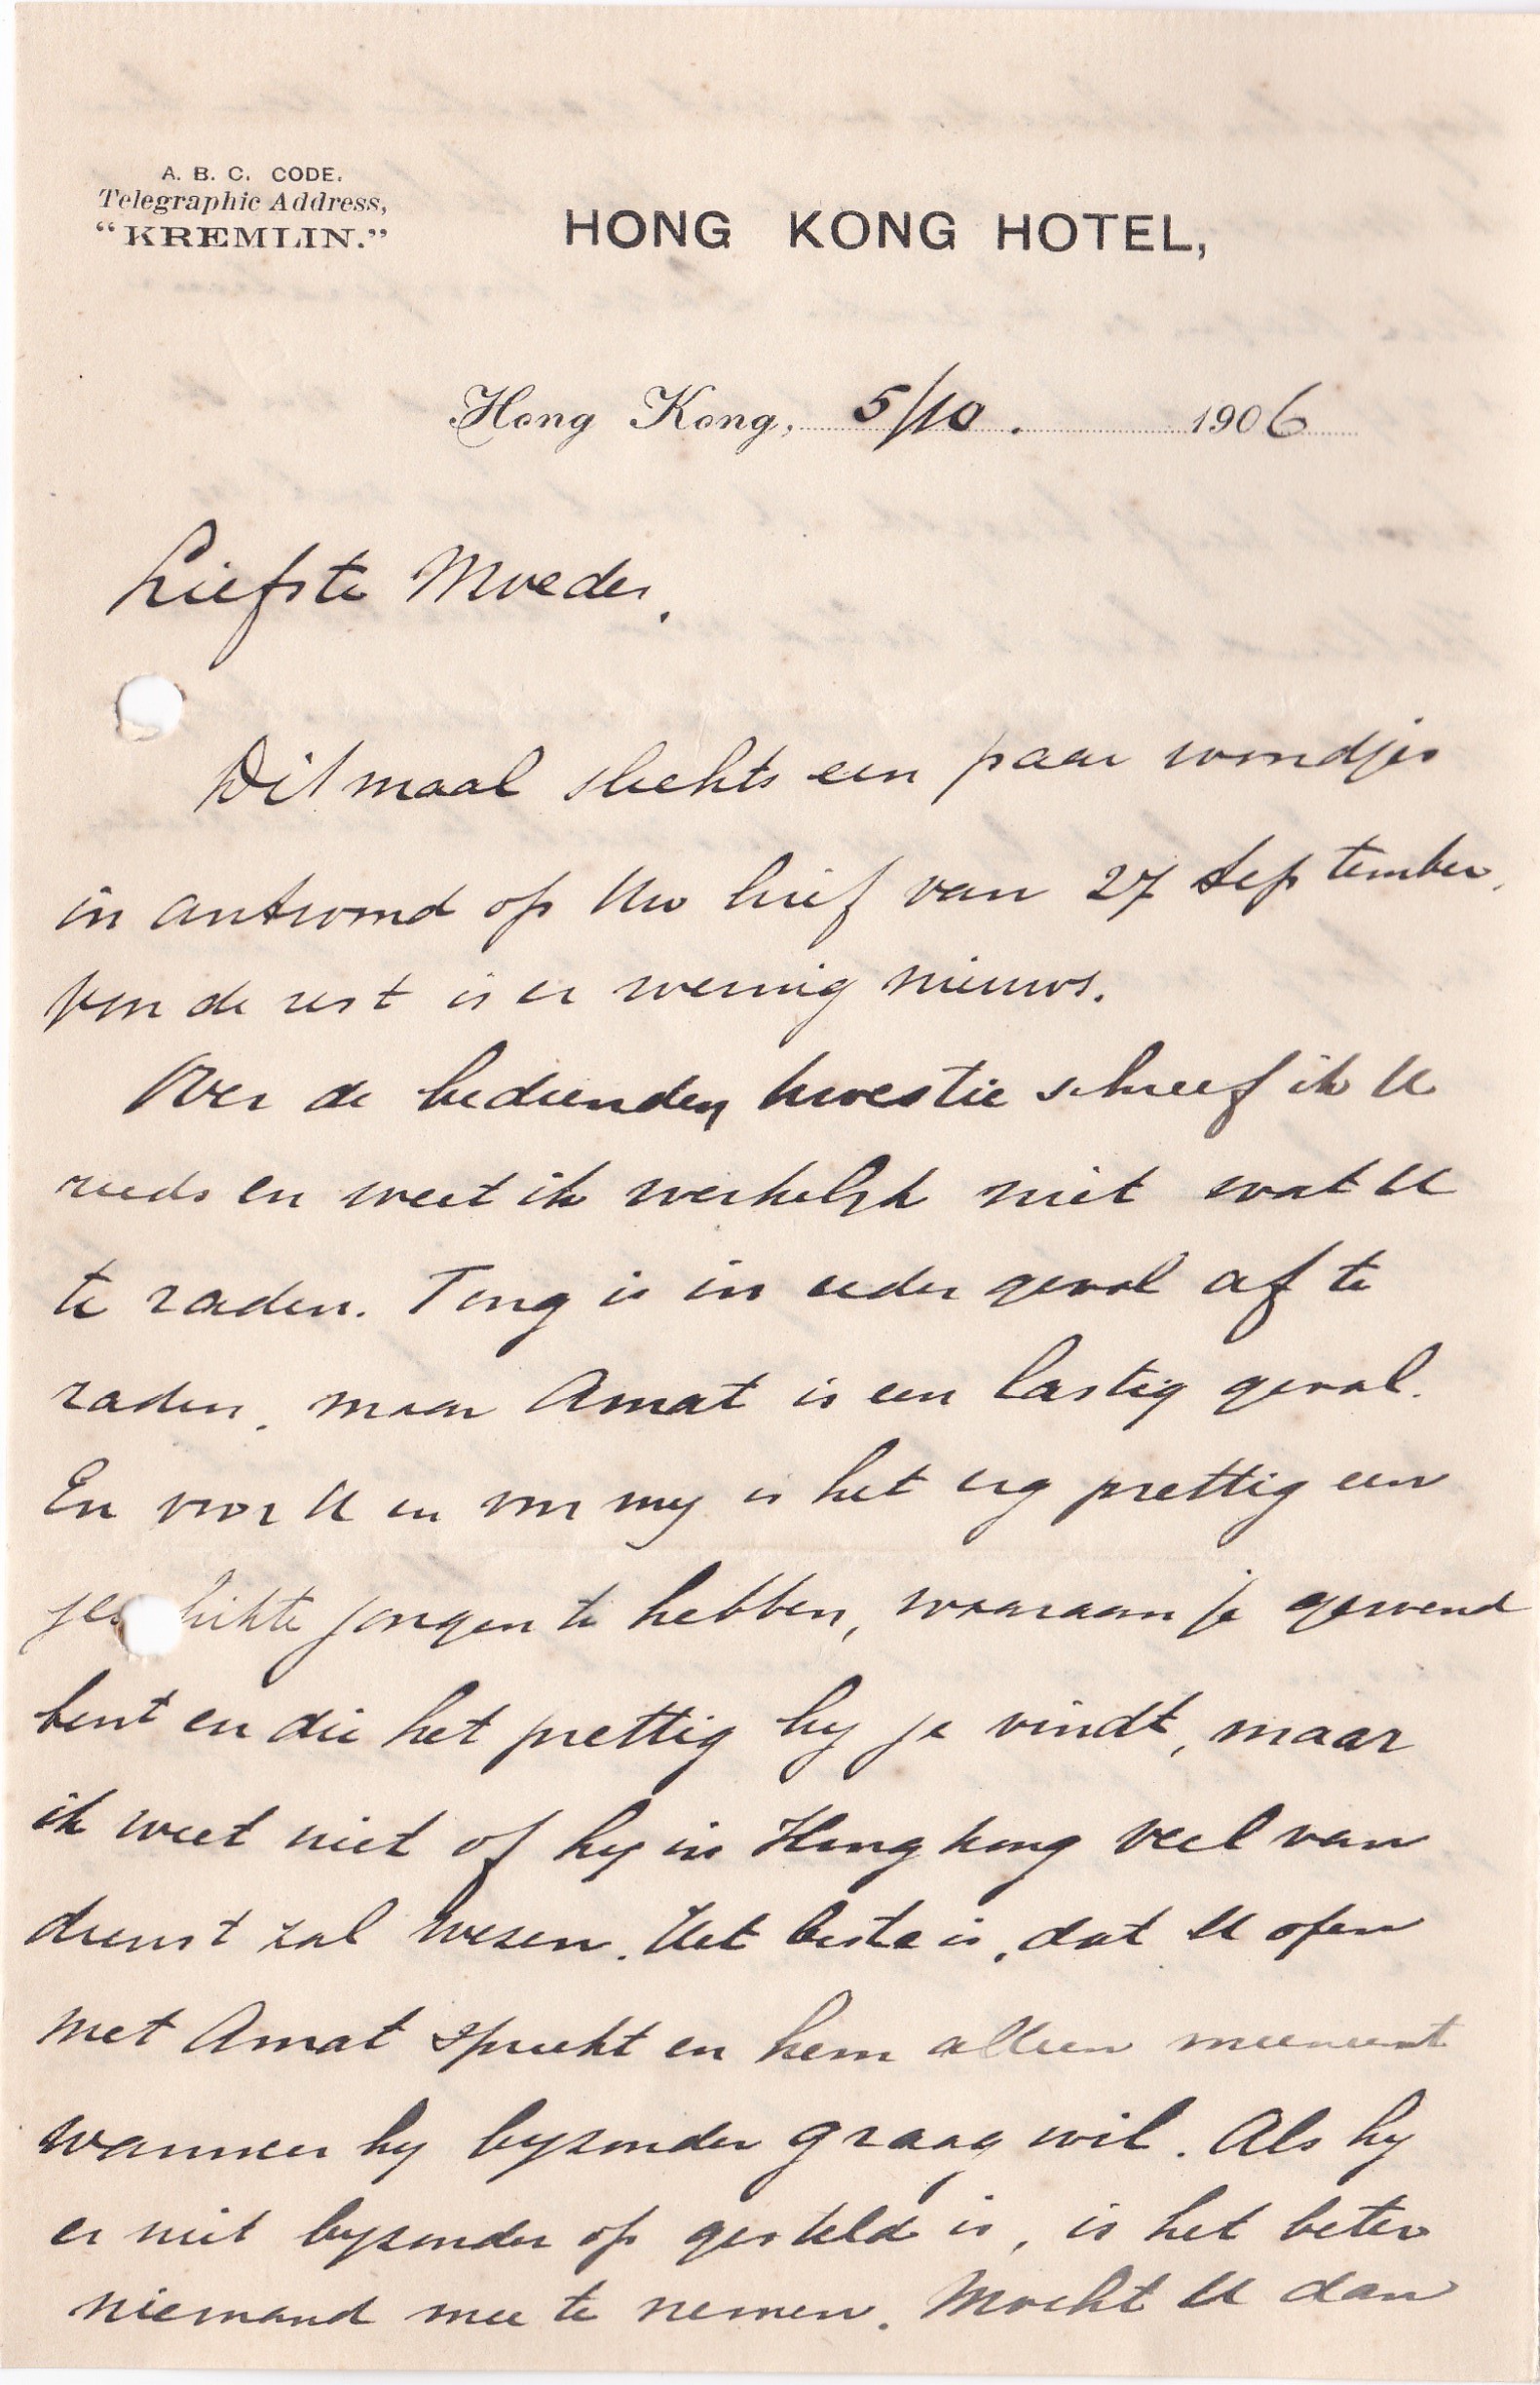 A. B. C. CODE.
Telegraphic Address,
"KREMLIN."
HONG KONG HOTEL,
Hong Kong, 5/10. 1906
Liefste Moeder,
Ditmaal slechts een paar woordjes
in antwoord op Uw brief van 27 September,
Voor de rest is er weinig nieuws.
Over de bedienden kwestie schreef ik U
reeds en weet ik werkelijk niet wat U
te raden. Tong is in ieder geval af te
raden, maar Amat is een lastig geval.
En voor U en voor my is het erg prettig een
geschikte jongen te hebben, waaraan je gewend
bent en die het prettig by je vindt, maar
ik weet niet of hy in Hongkong veel van
dienst zal wezen. Het beste is, dat U open
met Amat spreekt en hem alleen meeneemt
wanneer hy byzonder graag wil. Als hy
er niet byzonder op gesteld is, is het beter
niemand mee te nemen. Mocht U dan